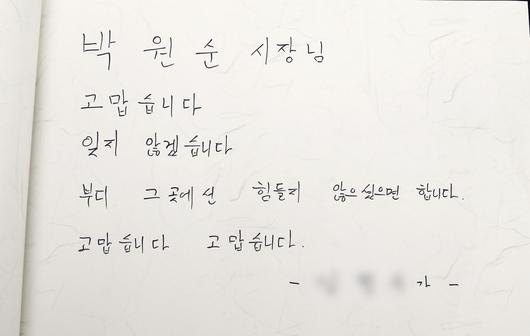 박 원 순 시장님
고맙습니다
잊지 않겠습니다
부디 그곳에선 힘들지 않으싶으면 합니다.
고맙습니다 고맙습니다.
- 가 -